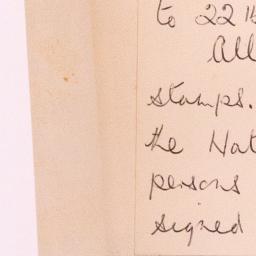 to 22
All
stamps.
the
persons
signed